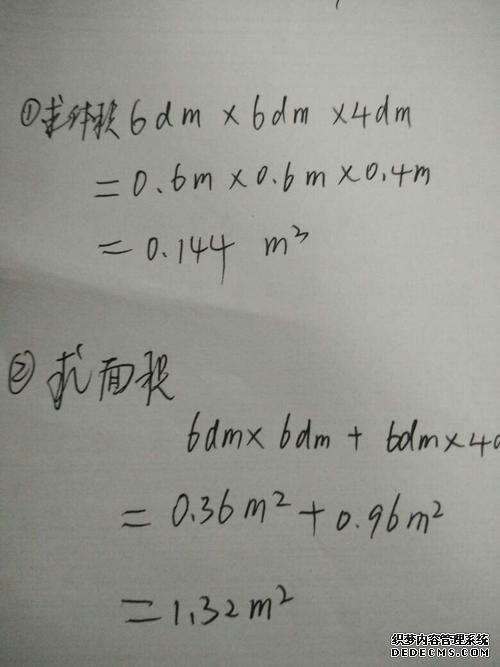 ①求体积 6dm × 6dm × 4dm
= 0.6m × 0.6m × 0.4m
= 0.144 m³
② 求面积
6dm × 6dm + 6dm × 4d
= 0.36m² + 0.96m²
= 1.32m²
织梦内容管理系统
DEDECMS.COM